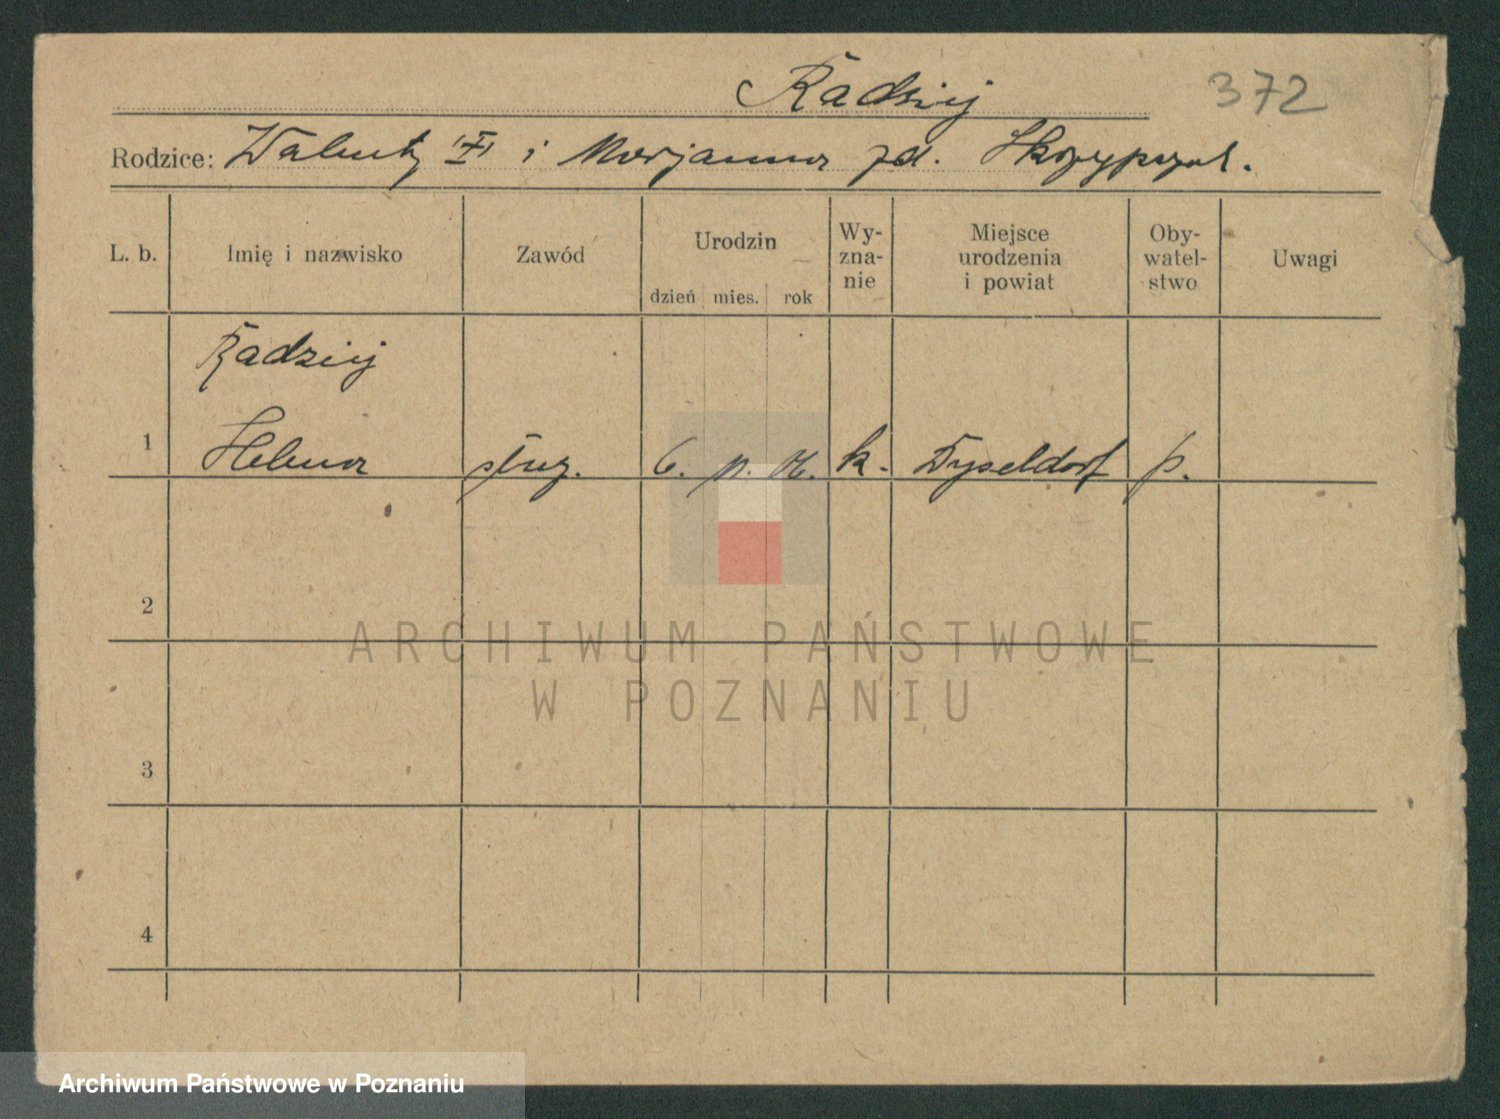 Radziej 372
Rodzice: Walenty i Marjanna zd. Skrzypczak.
L. b. Imię i nazwisko Zawód Urodzin dzień mies. rok Wy-zna-nie Miejsce urodzenia i powiat Oby-watel-stwo Uwagi
Radziej
1 Helena służ. 6. k. Dyseldorf p.
2
ARCHIWUM PAŃSTWOWE
W POZNANIU
3
4
Archiwum Państwowe w Poznaniu